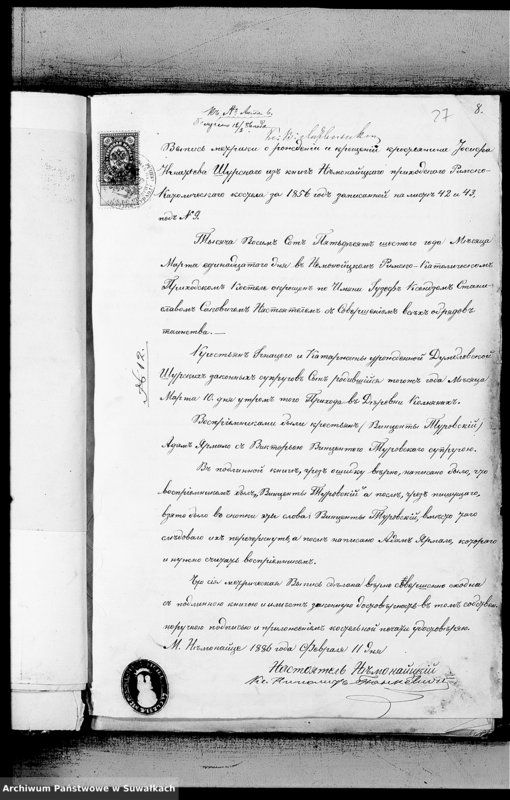 27
8.
Выпись метрики о рожденіи и крещеніи крестьянина Іосифа
Игнатова Щурскаго изъ книгъ Нѣмонайцкаго приходскаго Римско-
Католическаго костела за 1856 годъ записанной на листѣ 42 и 43,
подъ № 9.
Тысяча Восемь Сотъ Пятьдесятъ шестого года Мѣсяца
Марта единадцатого дня въ Немонойцкомъ Римско-Католическомъ
Приходскомъ Костелѣ окрещенъ по Имени Іузефъ Ксендзомъ Стани-
славомъ Настоятелемъ съ Совершеніемъ всѣхъ обрядовъ
таинства. —
№ 12.
Крестьянъ Игнацего и Катаржины урожденной
Щурскихъ законныхъ супруговъ Сынъ родившійся тогожъ года Мѣсяца
Марта 10 дня утромъ того Прихода въ Деревни
Воспріемниками были крестьяне (Винценты Туровскій)
Адамъ Ярмала съ Викторьею Винцентого Туровскаго супругою.
Въ подлинной книгѣ, чрезъ ошибку вѣрно, написано было, что
воспріемникомъ былъ „Винценты Туровскій" а послѣ, чрезъ пишущаго,
взято было въ скопки эти слова: Винценты Туровскій, вмѣсто чего
слѣдовало ихъ перечеркнуть, а послѣ написано Адамъ Ярмала, котораго
и нужно считать воспріемникомъ.
Что сія метрическая Выпись сдѣлана вѣрно совершенно сходна
съ подлинною книгою и имѣетъ законную достовѣрность въ томъ собствен-
норучною подписью и приложеніемъ костельной печати удостовѣряю.
М. Нѣмонайцы 1886 года Февраля 11 дня
Настоятель Нѣмонайцкій
Кс. Ипполитъ
Archiwum Państwowe w Suwałkach